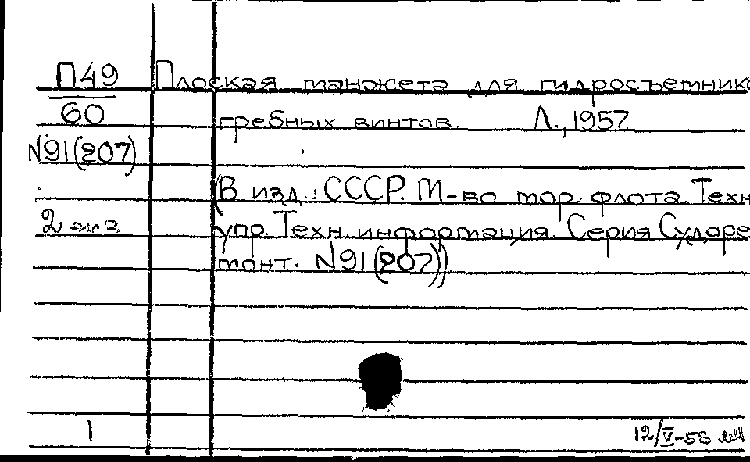 П49
60
N91(207)
2 экз
Плоская манжета для гидросъемник
гребных винтов. Л., 1957
(В изд.: СССР. М-во мор. флота. Техн
упр. Техн. информация. Серия Сударе
монт. N91(207))
1
12/V-58